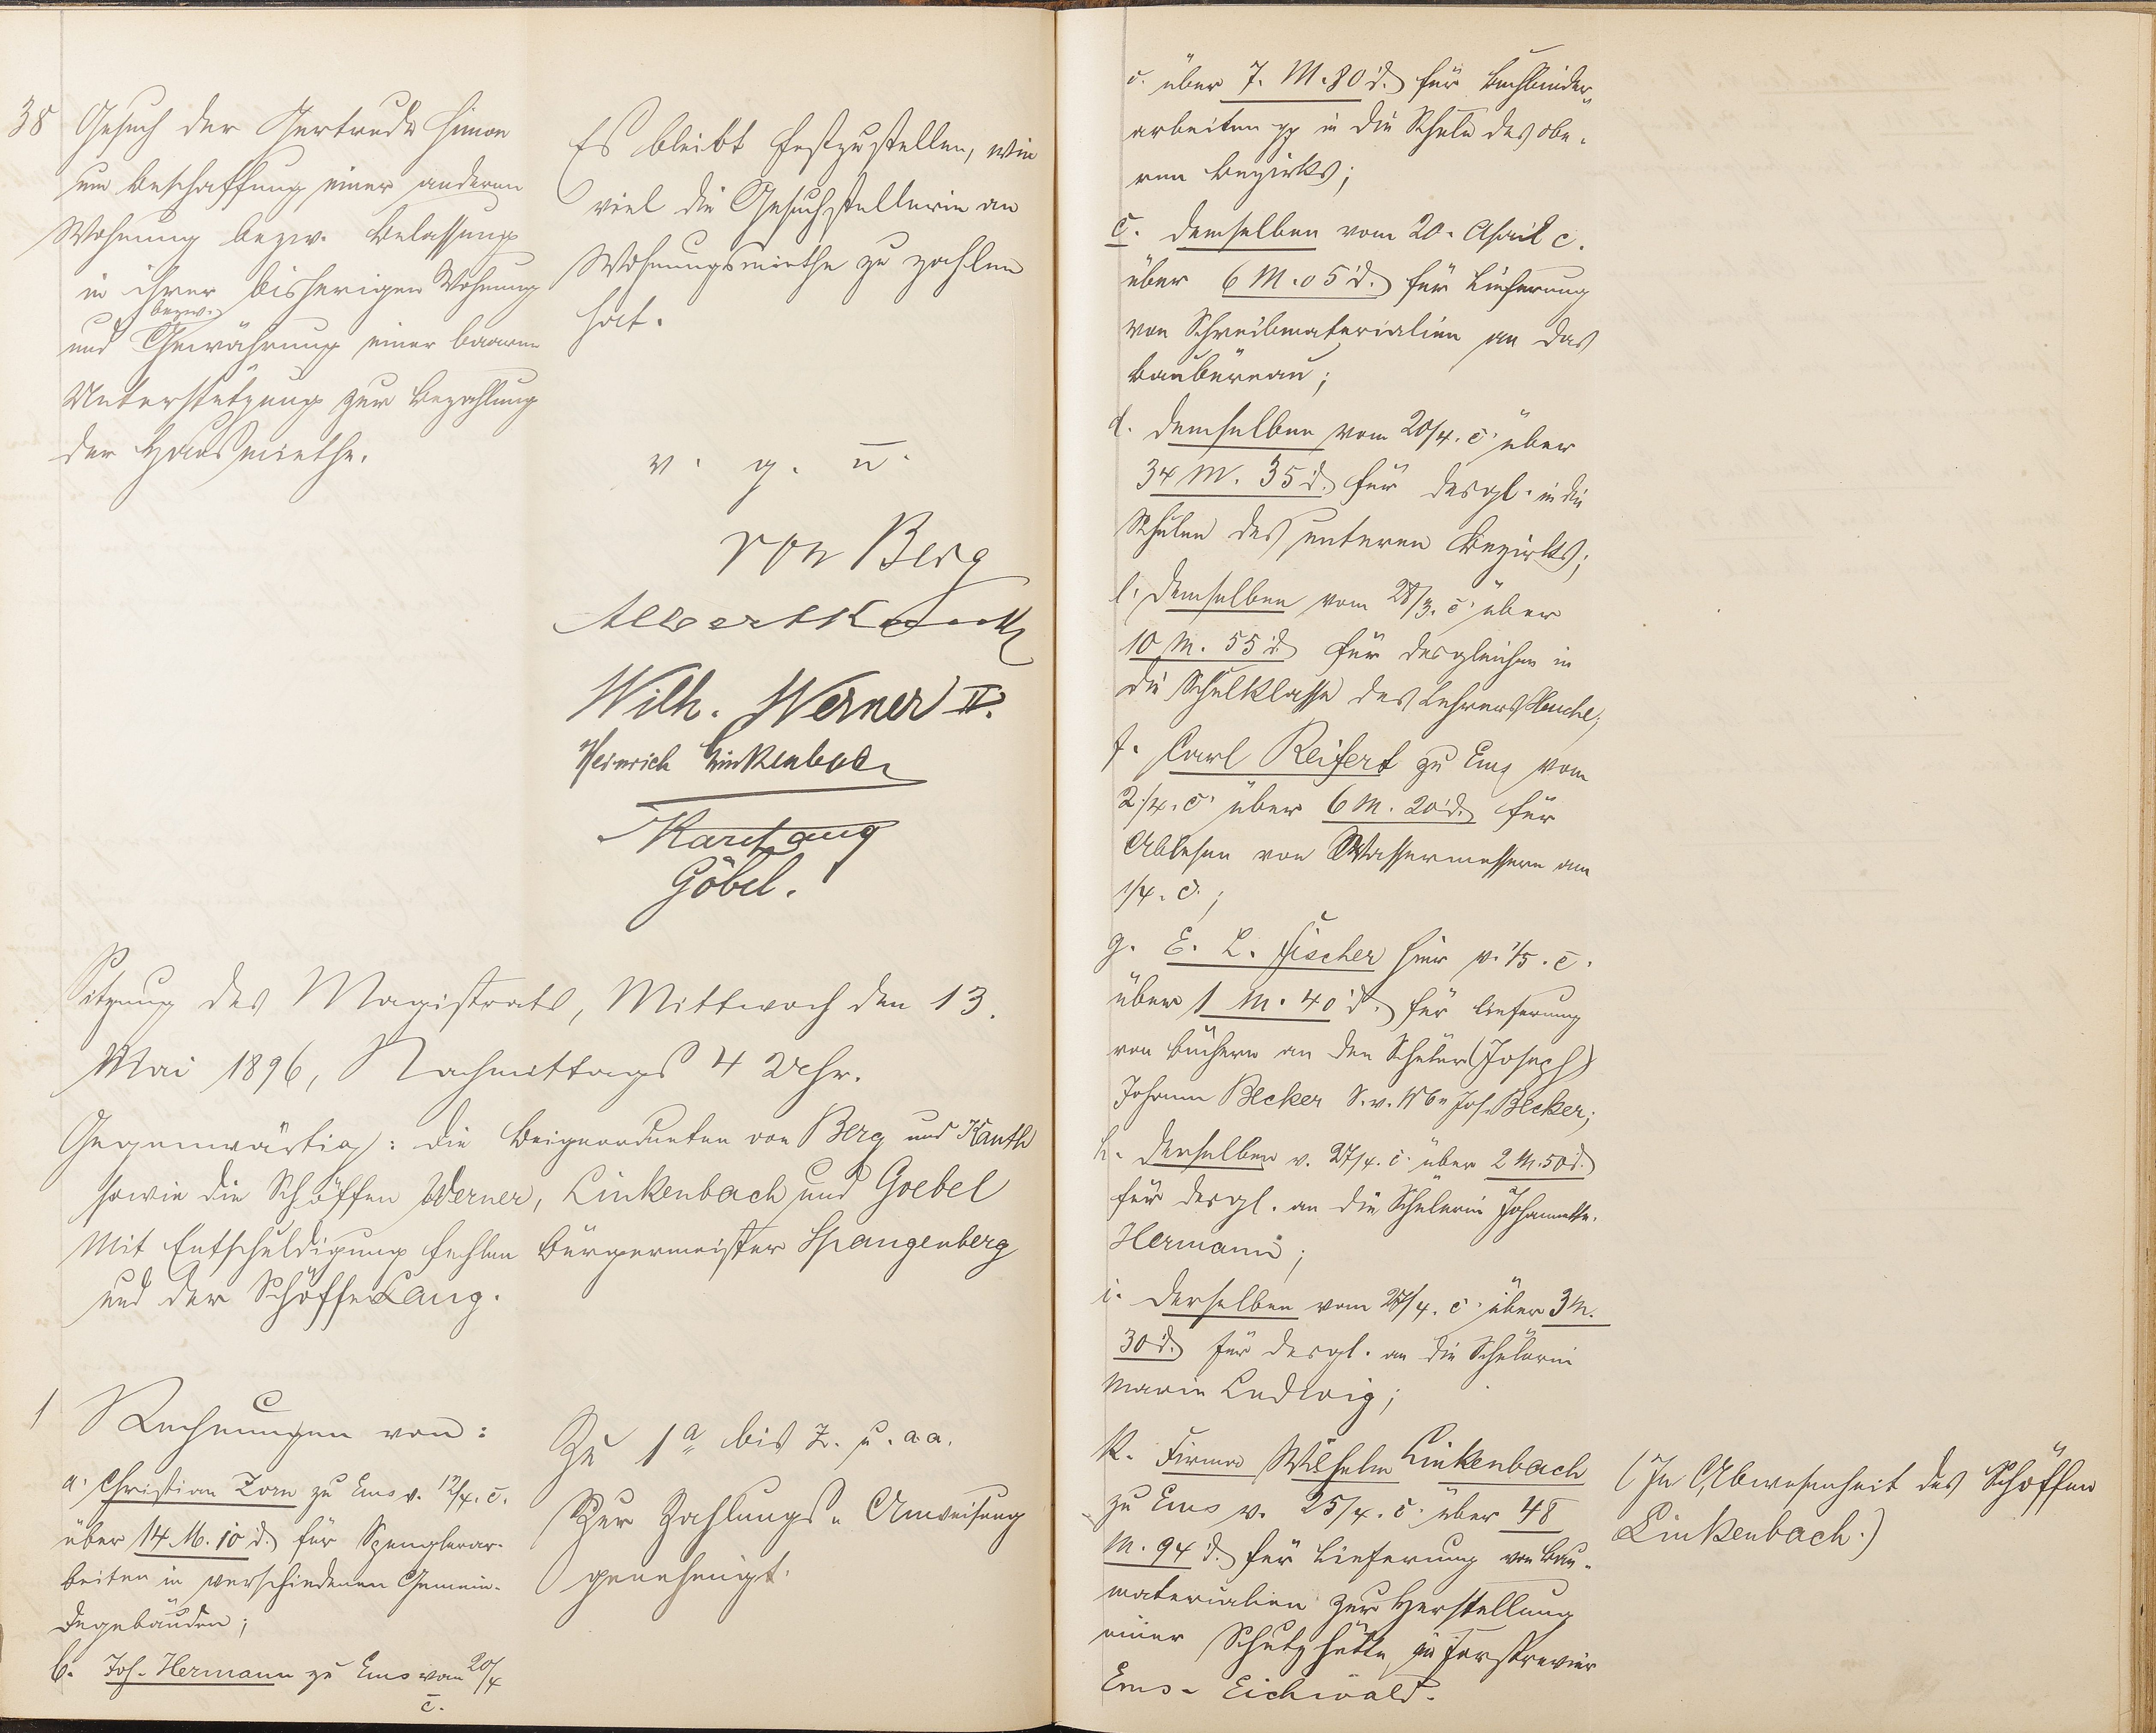 38 Gesuch der Gertrude Simon
um Beschaffung einer anderen
Wohnung bezw. Belassung
in ihrer bisherigen Wohnung
bezw.
und Gewährung einer baaren
Unterstützung zur Bezahlung
der Hausmiethe.
Es bleibt festzustellen, wie
viel die Gesuchstellerin an
Wohnungsmiethe zu zahlen
hat.
v. g. u.
von Berg
Albert Kauth
Wilh. Werner II.
Heinrich Linkenbach
Karl Lang
Göbel.
Sitzung des Magistrats, Mittwoch den 13.
Mai 1896, Nachmittags 4 Uhr.
Gegenwärtig: die Beigeordneten von Berg und Kauth
sowie die Schöffen Werner, Linkenbach und Goebel
Mit Entschuldigung fehlen Bürgermeister Spangenberg
und der Schöffe Lang.
1 Rechnungen von:
a. Christian Zorn zu Ems v. 12/4. c.
über 14 M. 10 d. für Spenglerar-
beiten in verschiedenen Gemein-
degebäuden;
b. Joh. Hermann zu Ems vom 20/4
c.
Zu 1 a bis z. u. aa.
Zur Zahlungs-Anweisung
genehmigt.
c. über 7. M. 80 d. für Buchbinder-
arbeiten pp in die Schule des obe-
ren Bezirks;
c. demselben vom 20. April c.
über 6 M. 05 d. für Lieferung
von Schreibmaterialien an das
Baubüreau;
d. demselben vom 20/4. c. über
34 M. 35 d. für desgl. in die
Schulen des unteren Bezirks;
e. demselben vom 28/3. c. über
10 M. 55 d. für desgleichen in
die Schulklasse des Lehrers
f. Carl Reifert zu Ems vom
2/4. c. über 6 M. 20 d. für
Ablesen von Wassermessern am
1/4. c.;
g. E. L. Fischer hier v. 1/5. c.
über 1 M. 40 d. für Lieferung
von Büchern an den Schüler (Joseph)
Johann Becker S. v. Wwe Jos. Becker;
h. derselben v. 27/4. c. über 2 M. 50 d.
für desgl. an die Schülerin Johannette
Hermann;
i. derselben vom 27/4. c. über 3 M.
30 d. für desgl. an die Schülerin
Marie Ludwig;
k. Firma Wilhelm Linkenbach
zu Ems v. 25/4. c. über 48
M. 94 d. für Lieferung von Bau-
materialien zur Herstellung
einer Schutzhütte im Forstrevier
Ems-Eichwald.
(In Abwesenheit des Schöffen
Linkenbach.)